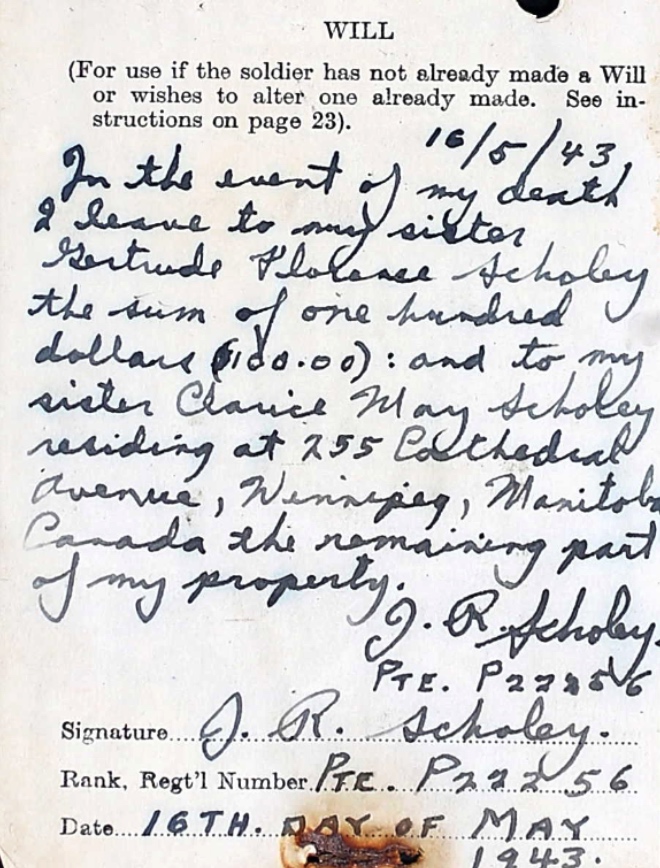 WILL
(For use if the soldier has not already made a Will
or wishes to alter one already made. See in-
structions on page 23).
16/5/43,
In the event of my death
I leave to my sister
Gertrude Florence Scholey
the sum of one hundred
dollars ($100.00) : and to my
sister Clarice May Scholey
residing at 255 Cathedral
Avenue, Winnipeg, Manitoba
Canada the remaining part
of my property.
J. R. Scholey.
PTE. P22256
Signature J. R. Scholey.
Rank, Regt'l Number PTE. P22256
Date 16TH. DAY OF MAY
1943.